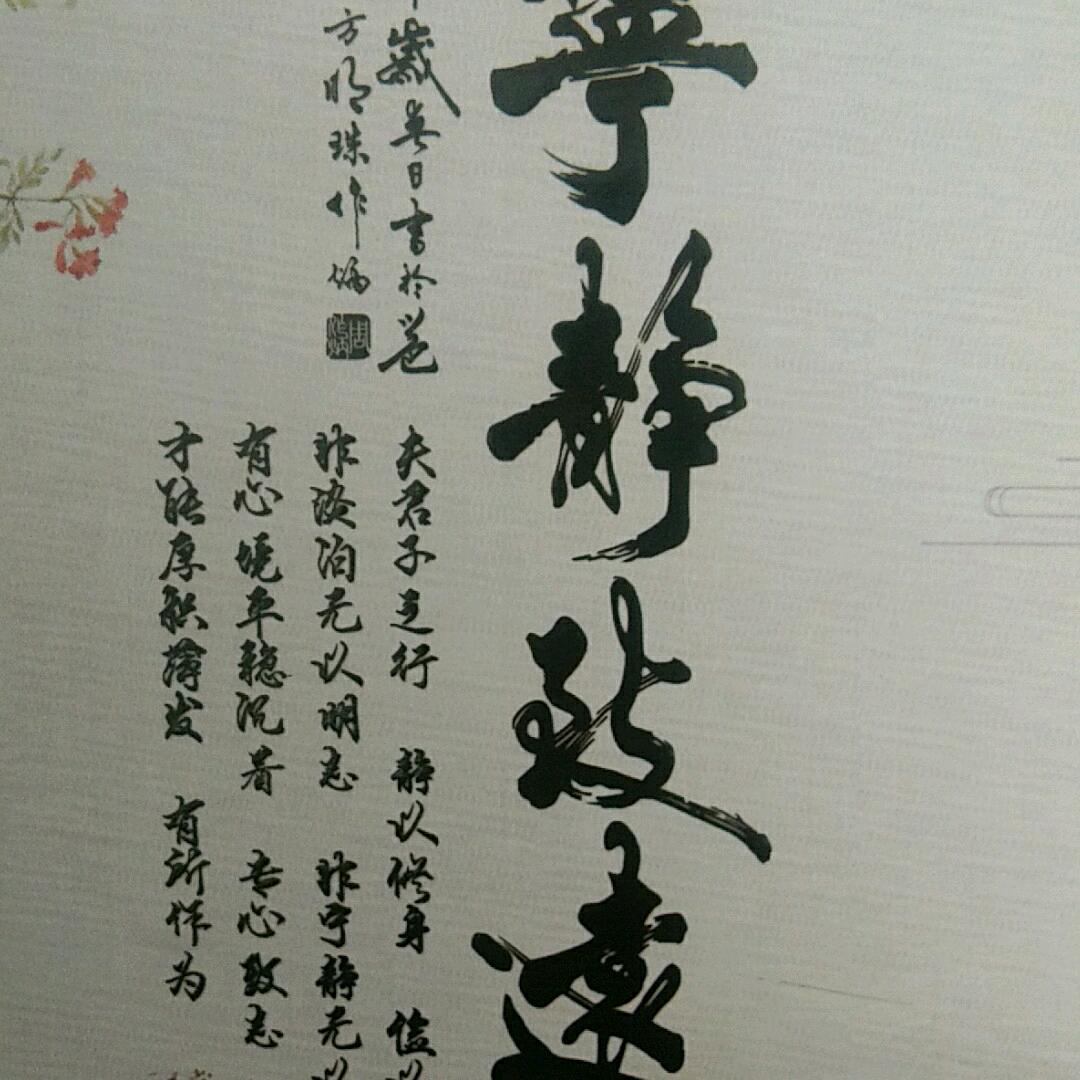 寧静致遠
夫君子之行 静以修身 俭以
非淡泊无以明志 非宁静无以
有心境平稳沉着 专心致志
才能厚积薄发 有所作为
岁春日书於邑
方明珠作